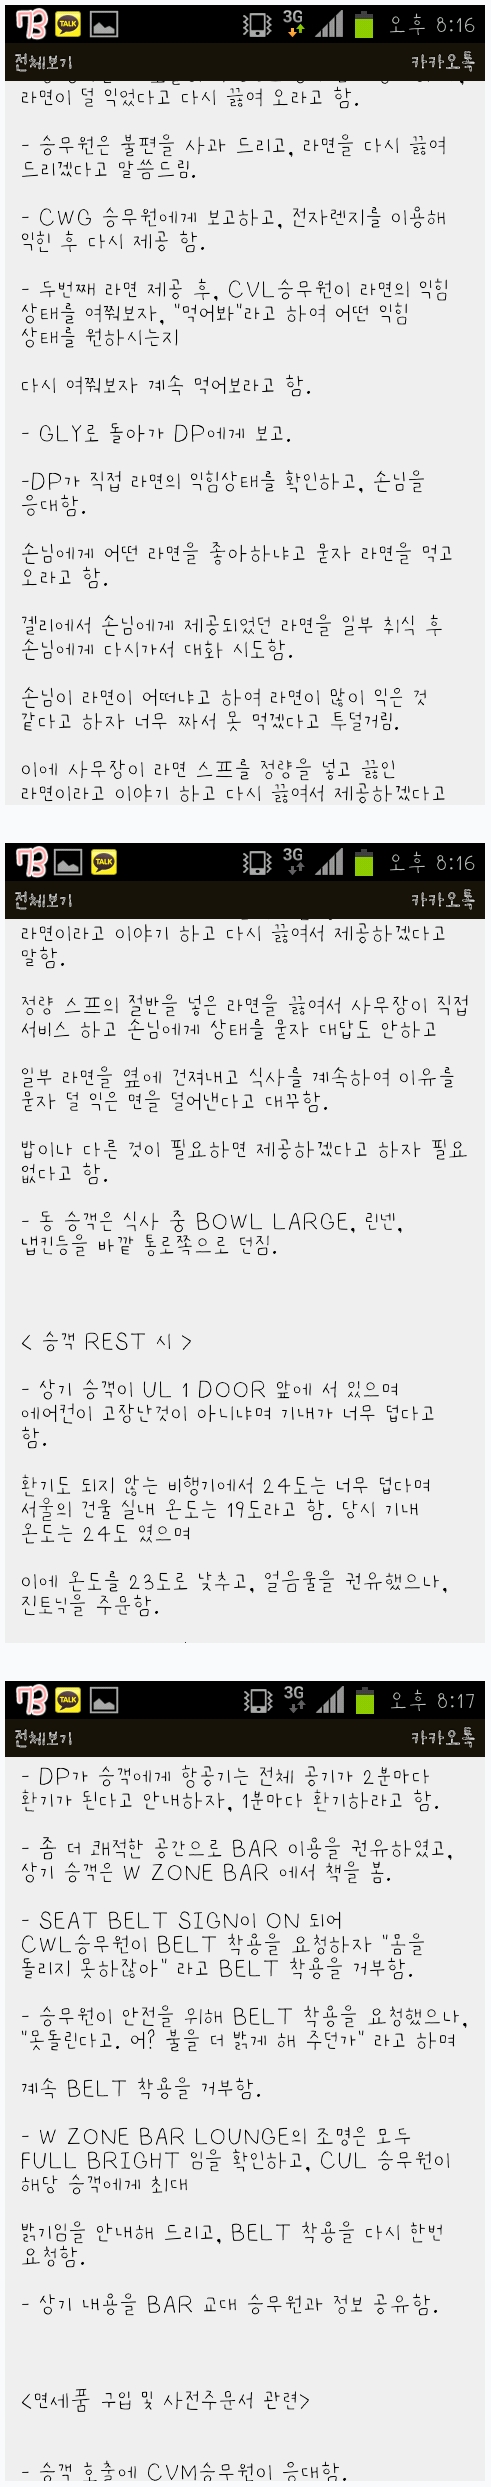 73 TALK 3G 오후 8:16
전체보기 카카오톡
라면이 덜 익었다고 다시 끓여 오라고 함.
- 승무원은 불편을 사과 드리고, 라면을 다시 끓여
드리겠다고 말씀드림.
- CWG 승무원에게 보고하고, 전자렌지를 이용해
익힌 후 다시 제공 함.
- 두번째 라면 제공 후, CVL승무원이 라면의 익힘
상태를 여쭤보자, "먹어봐"라고 하여 어떤 익힘
상태를 원하시는지
다시 여쭤보자 계속 먹어보라고 함.
- GLY로 돌아가 DP에게 보고.
-DP가 직접 라면의 익힘상태를 확인하고, 손님을
응대함.
손님에게 어떤 라면을 좋아하냐고 묻자 라면을 먹고
오라고 함.
겔리에서 손님에게 제공되었던 라면을 일부 취식 후
손님에게 다시가서 대화 시도함.
손님이 라면이 어떠냐고 하여 라면이 많이 익은 것
같다고 하자 너무 짜서 못 먹겠다고 투덜거림.
이에 사무장이 라면 스프를 정량을 넣고 끓인
라면이라고 이야기 하고 다시 끓여서 제공하겠다고
73 TALK 3G 오후 8:16
전체보기 카카오톡
라면이라고 이야기 하고 다시 끓여서 제공하겠다고
말함.
정량 스프의 절반을 넣은 라면을 끓여서 사무장이 직접
서비스 하고 손님에게 상태를 묻자 대답도 안하고
일부 라면을 옆에 건져내고 식사를 계속하여 이유를
묻자 덜 익은 면을 덜어낸다고 대꾸함.
밥이나 다른 것이 필요하면 제공하겠다고 하자 필요
없다고 함.
- 동 승객은 식사 중 BOWL LARGE, 린넨,
냅킨등을 바깥 통로쪽으로 던짐.
< 승객 REST 시 >
- 상기 승객이 UL 1 DOOR 앞에 서 있으며
에어컨이 고장난것이 아니냐며 기내가 너무 덥다고
함.
환기도 되지 않는 비행기에서 24도는 너무 덥다며
서울의 건물 실내 온도는 19도라고 함. 당시 기내
온도는 24도 였으며
이에 온도를 23도로 낮추고, 얼음물을 권유했으나,
진토닉을 주문함.
73 TALK 3G 오후 8:17
전체보기 카카오톡
- DP가 승객에게 항공기는 전체 공기가 2분마다
환기가 된다고 안내하자, 1분마다 환기하라고 함.
- 좀 더 쾌적한 공간으로 BAR 이용을 권유하였고,
상기 승객은 W ZONE BAR 에서 책을 봄.
- SEAT BELT SIGN이 ON 되어
CWL승무원이 BELT 착용을 요청하자 "몸을
돌리지 못하잖아" 라고 BELT 착용을 거부함.
- 승무원이 안전을 위해 BELT 착용을 요청했으나,
"못돌린다고. 어? 불을 더 밝게 해 주던가" 라고 하며
계속 BELT 착용을 거부함.
- W ZONE BAR LOUNGE의 조명은 모두
FULL BRIGHT 임을 확인하고, CUL 승무원이
해당 승객에게 최대
밝기임을 안내해 드리고, BELT 착용을 다시 한번
요청함.
- 상기 내용을 BAR 교대 승무원과 정보 공유함.
<면세품 구입 및 사전주문서 관련>
- 승객 호출에 CVM승무원이 응대함.